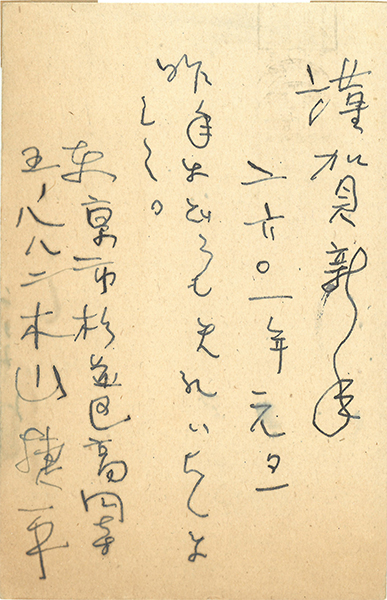 謹賀新年
二六〇一年元旦
昨年はどうも失れいたしま
した。
東京市杉並区高円寺
五ノ八八二木山捷平